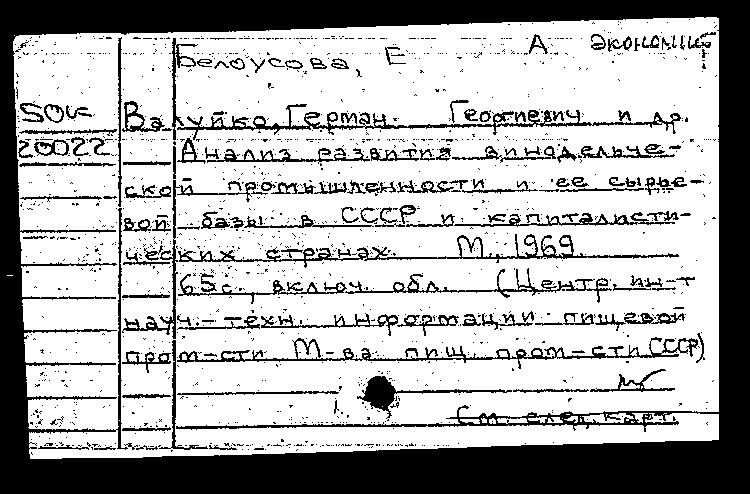 Белоусова, Е А экономист
SOK Валуйко, Герман Георгиевич и др.
20022 Анализ развития винодельче-
ской промышленности и ее сырье-
вой базы в СССР и капиталисти-
ческих странах. М., 1969.
65с., включ. обл. (Центр. ин-т
науч.-техн. информации пищевой
пром-сти М-ва пищ. пром-сти СССР)
См. след. карт.